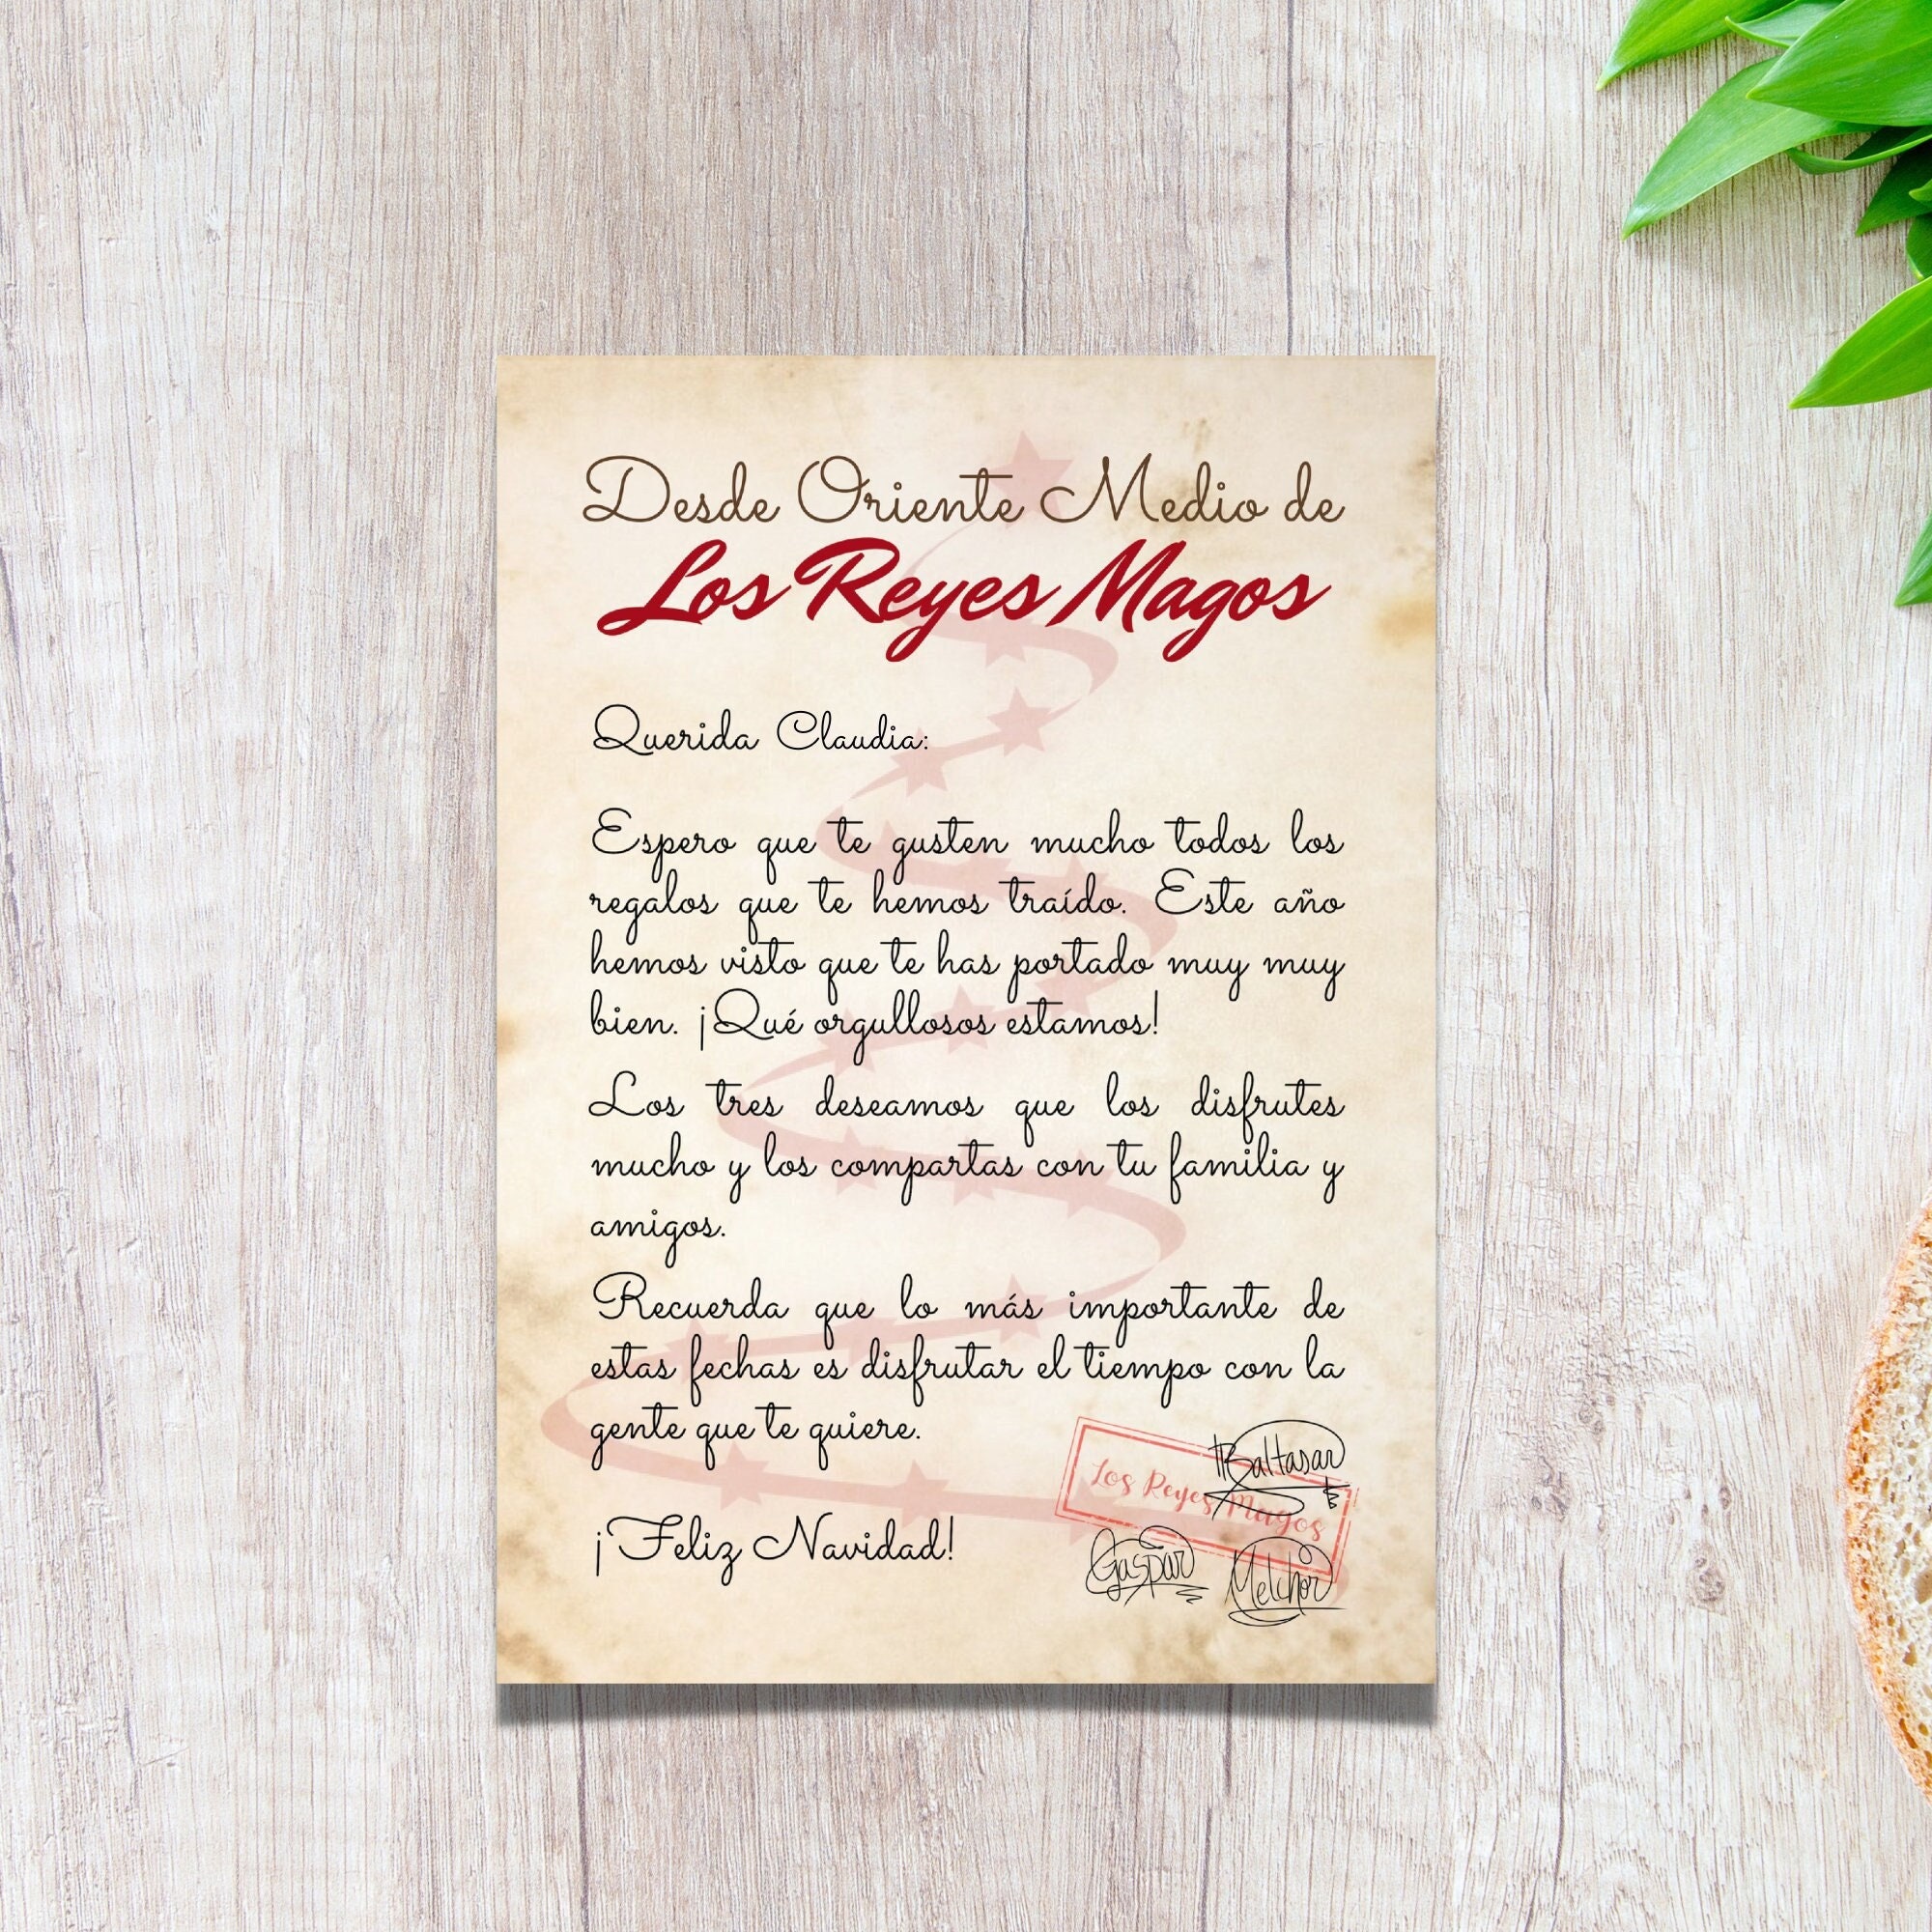 Desde Oriente Medio de
Los Reyes Magos
Querida Claudia:
Espero que te gusten mucho todos los
regalos que te hemos traído. Este año
hemos visto que te has portado muy muy
bien. ¡Qué orgullosos estamos!
Los tres deseamos que los disfrutes
mucho y los compartas con tu familia y
amigos.
Recuerda que lo más importante de
estas fechas es disfrutar el tiempo con la
gente que te quiere.
¡Feliz Navidad!
Baltasar
Los Reyes Magos
Gaspar
Melchor